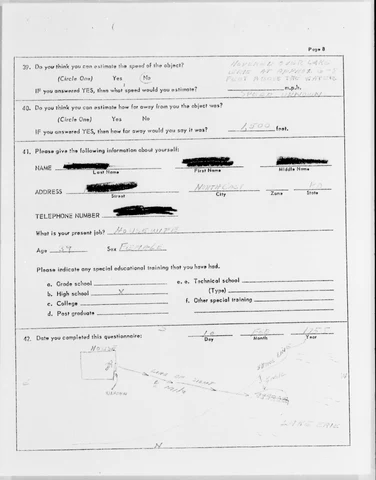 Page 8
39. Do you think you can estimate the speed of the object?
(Circle One) Yes No
IF you answered YES, then what speed would you estimate? m.p.h.
40. Do you think you can estimate how far away from you the object was?
(Circle One) Yes No
IF you answered YES, then how far away would you say it was? 1,500 feet.
41. Please give the following information about yourself:
NAME
Last Name First Name Middle Name
ADDRESS
Street City Zone State
TELEPHONE NUMBER
What is your present job? HOUSEWIFE
Age 39 Sex FEMALE
Please indicate any special educational training that you have had.
a. Grade school e. a. Technical school
b. High school X (Type)
c. College f. Other special training
d. Post graduate
42. Date you completed this questionnaire:
Day Month Year
HOUSE